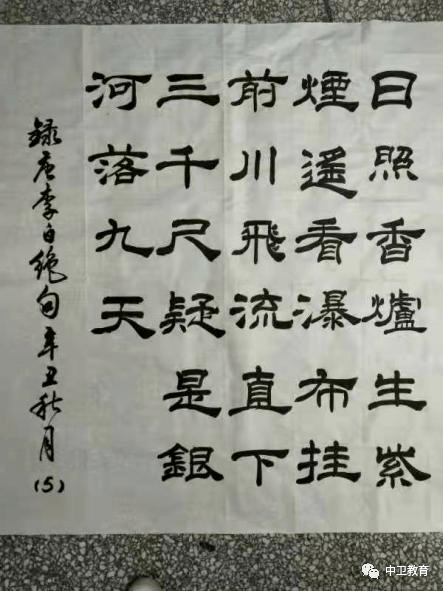 日照香爐生紫
煙遙看瀑布挂
前川飛流直下
三千尺疑是銀
河落九天
録唐李白絶句辛丑秋月(5)
中卫教育